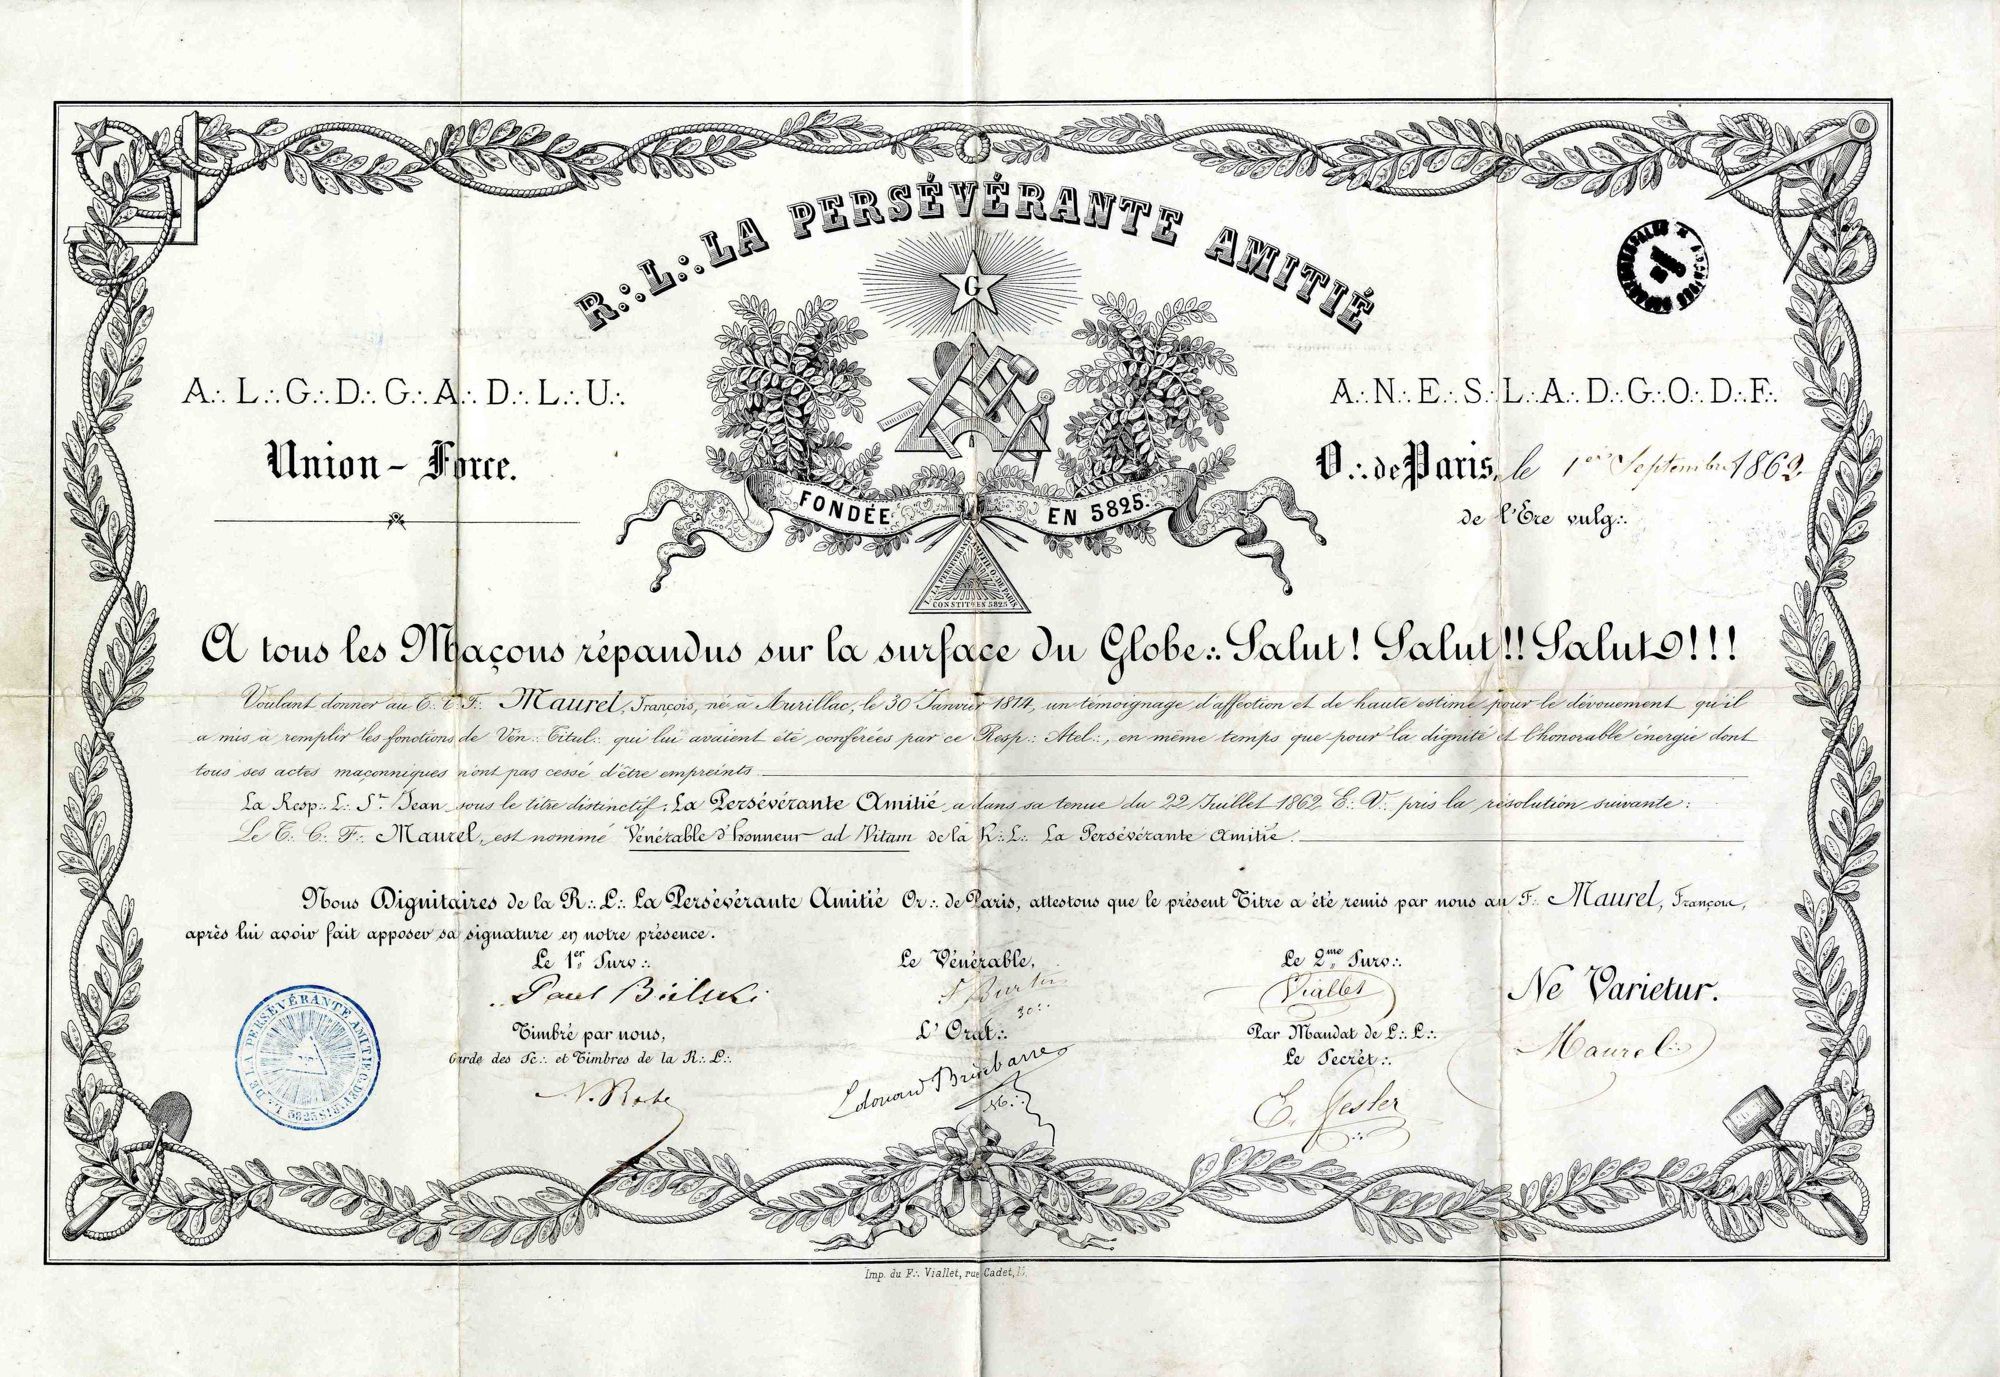 R∴ L∴ LA PERSÉVÉRANTE AMITIÉ
G
A∴ L∴ G∴ D∴ G∴ A∴ D∴ L∴ U∴
A∴ N∴ E∴ S∴ L∴ A∴ D∴ G∴ O∴ D∴ F∴
Union - Force.
O∴ de Paris, le 1er Septembre 1862.
de l'Ere vulg∴
FONDÉE EN 5825.
CONSTIT EN 5825
A tous les Maçons répandus sur la surface du Globe∴ Salut! Salut!! Salut!!!
Voulant donner au C∴ T∴ F∴ Maurel, François, né à Aurillac, le 30 Janvier 1814, un témoignage d'affection et de haute estime pour le dévouement qu'il
a mis à remplir les fonctions de Vén∴ Titul∴ qui lui avaient été conférées par ce Resp∴ Atel∴, en même temps que pour la dignité et l'honorable énergie dont
tous ses actes maçonniques n'ont pas cessé d'être empreints.
La Resp∴ L∴ St Jean sous le titre distinctif: La Persévérante Amitié, a dans sa tenue du 22 Juillet 1862 E∴ V∴ pris la résolution suivante:
Le T∴ C∴ F∴ Maurel, est nommé Vénérable d'honneur ad Vitam de la R∴ L∴ La Persévérante Amitié.
Nous Dignitaires de la R∴ L∴ La Persévérante Amitié Or∴ de Paris, attestons que le présent Titre a été remis par nous au F∴ Maurel, François,
après lui avoir fait apposer sa signature en notre présence.
Le 1er Surv∴
Le Vénérable,
Le 2me Surv∴
Paul
30∴
Viallet
Ne Varietur.
Timbré par nous,
L'Orat∴
Par Mandat de L∴ L∴
Garde des Sc∴ et Timbres de la R∴ L∴
Le Secrét∴
Maurel
Edouard
E. Gesler
DE LA PERSÉVÉRANTE AMITIÉ
5825
Imp. du F∴ Viallet, rue Cadet,